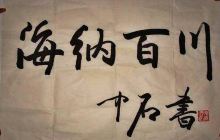 海纳百川
中石书